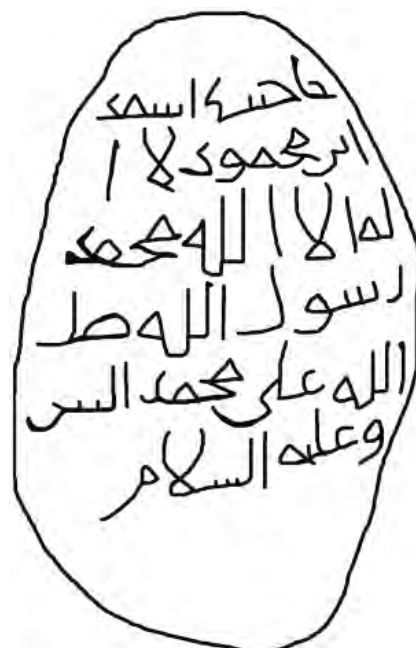 ابن محمود لا ا
له الا الله محمد
رسول الله صل
الله على محمد النبي
وعليه السلام